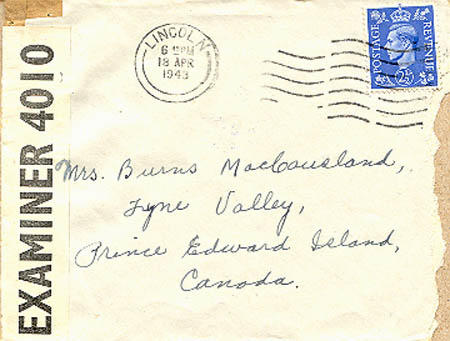 EXAMINER 4010
LINCOLN
6 PM
18 APR
1943
POSTAGE
REVENUE
2½
Mrs. Burns MacCausland,
Tyne Valley,
Prince Edward Island,
Canada.